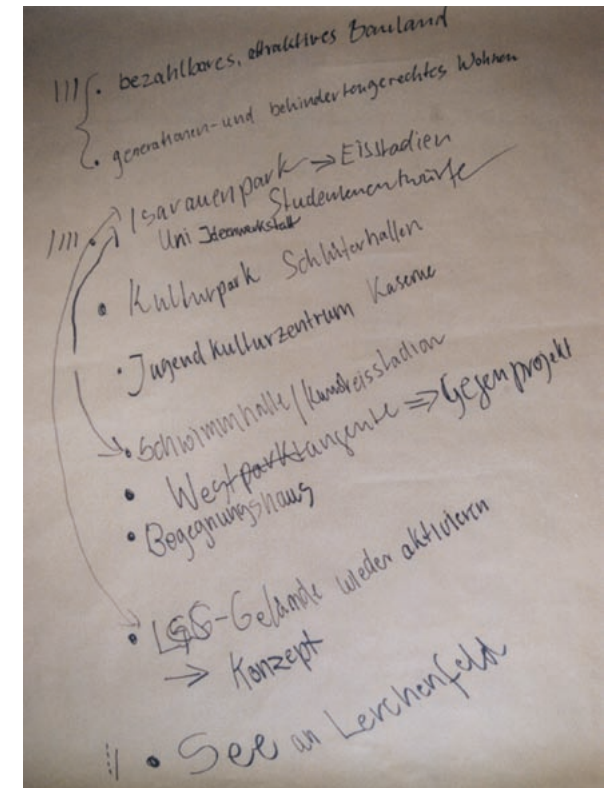 ||| • bezahlbares, attraktives Bauland
• generationen- und behindertengerechtes Wohnen
|||| • Isarauenpark → Eisstadien
Uni Ideenwerkstatt Studentenentwürfe
• Kulturpark Schlüterhallen
• Jugendkulturzentrum Kaserne
• Schwimmhalle/Kunsteisstadion
• Westparktangente ⇒ Gegenprojekt
• Begegnungshaus
• LGS-Gelände wieder aktivieren
→ Konzept
|| • See an Lerchenfeld